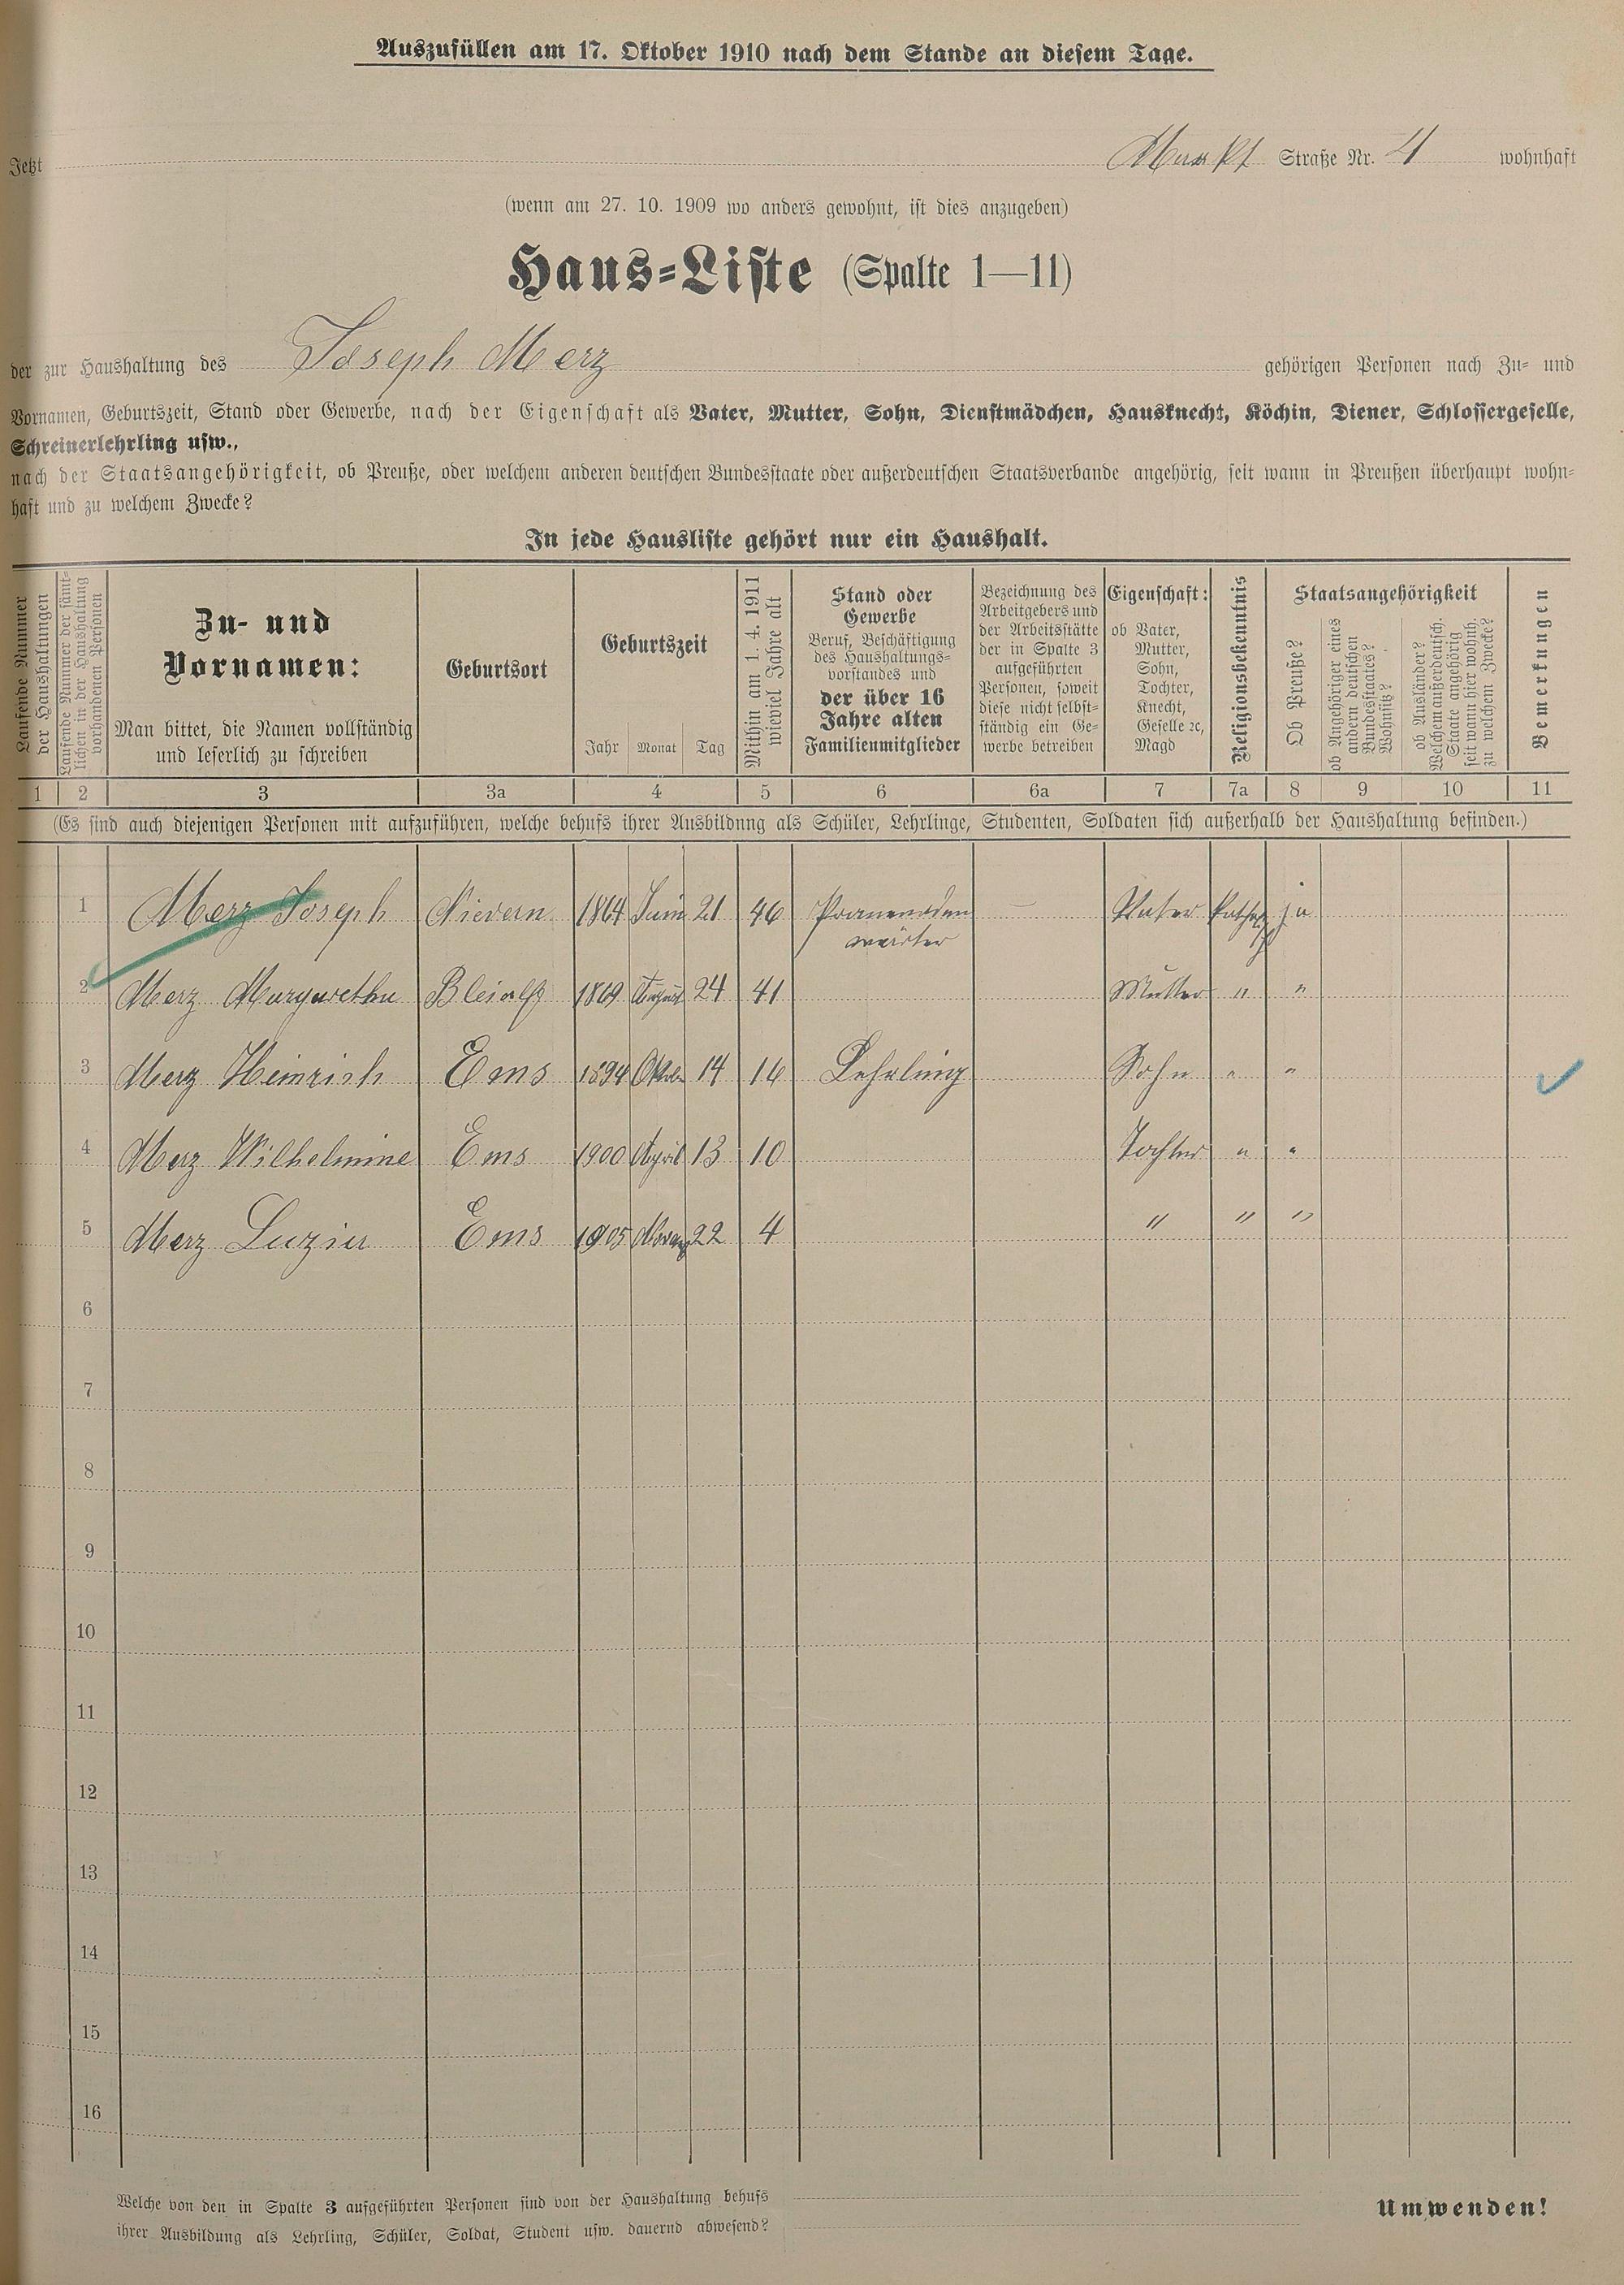 Auszufüllen am 17. Oktober 1910 nach dem Stande an diesem Tage.
Jetzt Markt Straße Nr. 4 wohnhaft
(wenn am 27. 10. 1909 wo anders gewohnt, ist dies anzugeben)
Haus-Liste (Spalte 1—11)
der zur Haushaltung des Joseph Merz gehörigen Personen nach Zu- und
Vornamen, Geburtszeit, Stand oder Gewerbe, nach der Eigenschaft als Vater, Mutter, Sohn, Dienstmädchen, Hausknecht, Köchin, Diener, Schlossergeselle,
Schreinerlehrling usw.,
nach der Staatsangehörigkeit, ob Preuße, oder welchem anderen deutschen Bundesstaate oder außerdeutschen Staatsverbande angehörig, seit wann in Preußen überhaupt wohn-
haft und zu welchem Zwecke?
In jede Hausliste gehört nur ein Haushalt.
Laufende Nummer
der Haushaltungen
Laufende Nummer der sämt-
lichen in der Haushaltung
vorhandenen Personen
Zu- und
Vornamen:
Man bittet, die Namen vollständig
und leserlich zu schreiben
Geburtsort
Geburtszeit
Jahr Monat Tag
Mithin am 1. 4. 1911
wieviel Jahre alt
Stand oder
Gewerbe
Beruf, Beschäftigung
des Haushaltungs-
vorstandes und
der über 16
Jahre alten
Familienmitglieder
Bezeichnung des
Arbeitgebers und
der Arbeitsstätte
der in Spalte 3
aufgeführten
Personen, soweit
diese nicht selbst-
ständig ein Ge-
werbe betreiben
Eigenschaft:
ob Vater,
Mutter,
Sohn,
Tochter,
Knecht,
Geselle ꝛc,
Magd
Religionsbekenntnis
Staatsangehörigkeit
Ob Preuße?
ob Angehöriger eines
andern deutschen
Bundesstaates?
Wohnsitz?
ob Ausländer?
Welchem außerdeutsch.
Staate angehörig
seit wann hier wohnh.
zu welchem Zwecke?
Bemerkungen
1 2 3 3a 4 5 6 6a 7 7a 8 9 10 11
(Es sind auch diejenigen Personen mit aufzuführen, welche behufs ihrer Ausbildung als Schüler, Lehrlinge, Studenten, Soldaten sich außerhalb der Haushaltung befinden.)
1 Merz Joseph Nievern 1864 Juni 21 46 Promenaden — Vater kathol ja
wärter
2 Merz Margaretha Bleialf 1869 August 24 41 Mutter " "
3 Merz Heinrich Ems 1894 Oktober 14 16 Lehrling Sohn " "
4 Merz Wilhelmine Ems 1900 April 13 10 Tochter " "
5 Merz Luzia Ems 1905 22 4 " " "
6
7
8
9
10
11
12
13
14
15
16
Welche von den in Spalte 3 aufgeführten Personen sind von der Haushaltung behufs
ihrer Ausbildung als Lehrling, Schüler, Soldat, Student usw. dauernd abwesend?
Umwenden!